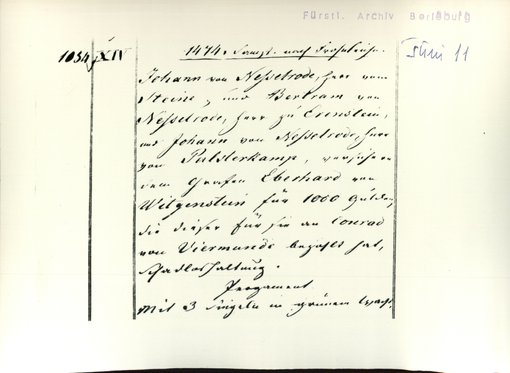 Fürstl. Archiv Berleburg
1034 XIV
1474. Sampt. nach Frohnleichn.
Juni 11
Johann von Nesselrode, Herr vom
Steine, und Bertram von
Nesselrode, Herr zu Erenstein,
und Johann von Nesselrode, Herr
von Pulsterkamp, versichern
dem Grafen Eberhard von
Witgenstein für 1000 Gulden,
die dieser für sie an Conrad
von Viermunde bezahlt hat,
Schadloshaltung.
Pergament
Mit 3 Siegeln in grünem Wachs.